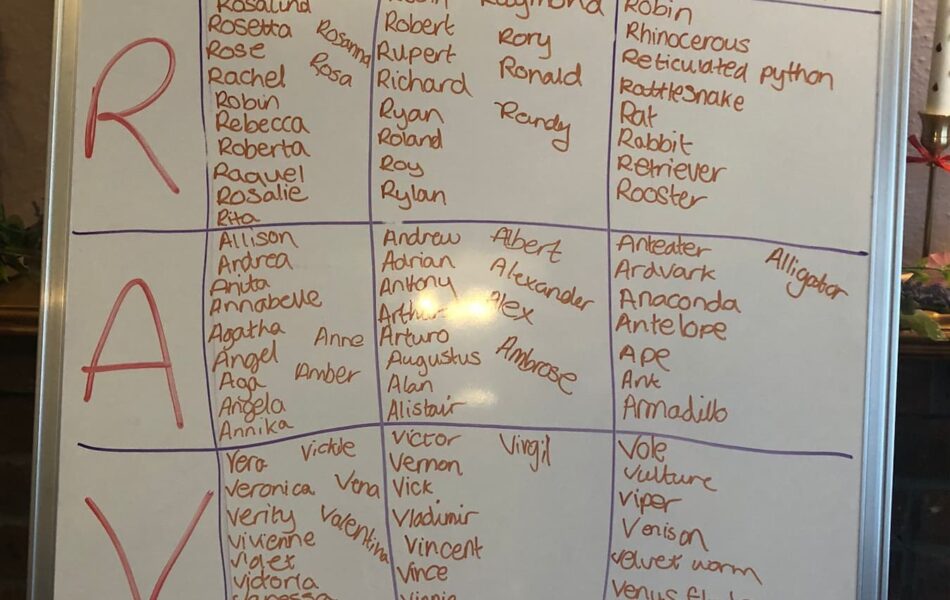 R
Rosalind
Rosetta Rosanna
Rose Rosa
Rachel
Robin
Rebecca
Roberta
Raquel
Rosalie
Rita
Raymond
Robert Rory
Rupert
Richard Ronald
Ryan Randy
Roland
Roy
Rylan
Robin
Rhinocerous
Reticulated python
Rattlesnake
Rat
Rabbit
Retriever
Rooster
A
Allison
Andrea
Anita
Annabelle
Agatha Anne
Angel
Aga Amber
Angela
Annika
Andrew Albert
Adrian Alexander
Antony
Arthur Alex
Arturo
Augustus Ambrose
Alan
Alistair
Anteater Alligator
Ardvark
Anaconda
Antelope
Ape
Ant
Armadillo
V
Vera Vickie
Veronica Vena
Verity Valentina
Vivienne
Violet
Victoria
Vanessa
Victor Virgil
Vernon
Vick
Vladimir
Vincent
Vince
Vole
Vulture
Viper
Venison
Velvet worm
Venus